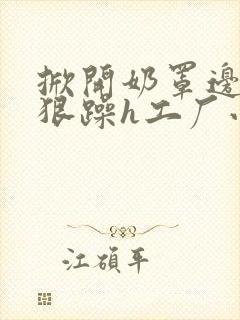 掀開奶罩邊
狠躁h工厂
江碩平